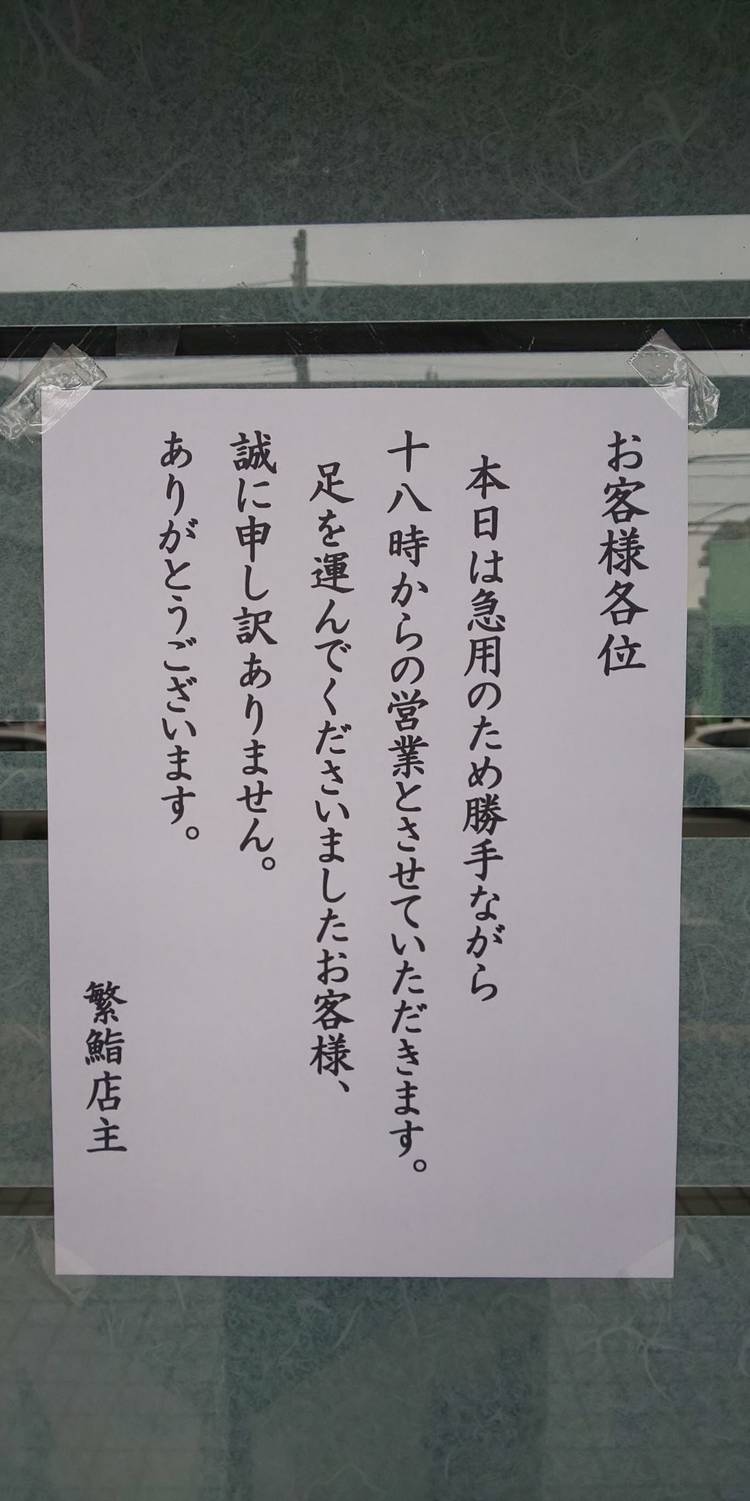 お客様各位
本日は急用のため勝手ながら
十八時からの営業とさせていただきます。
足を運んでくださいましたお客様、
誠に申し訳ありません。
ありがとうございます。
繁鮨店主